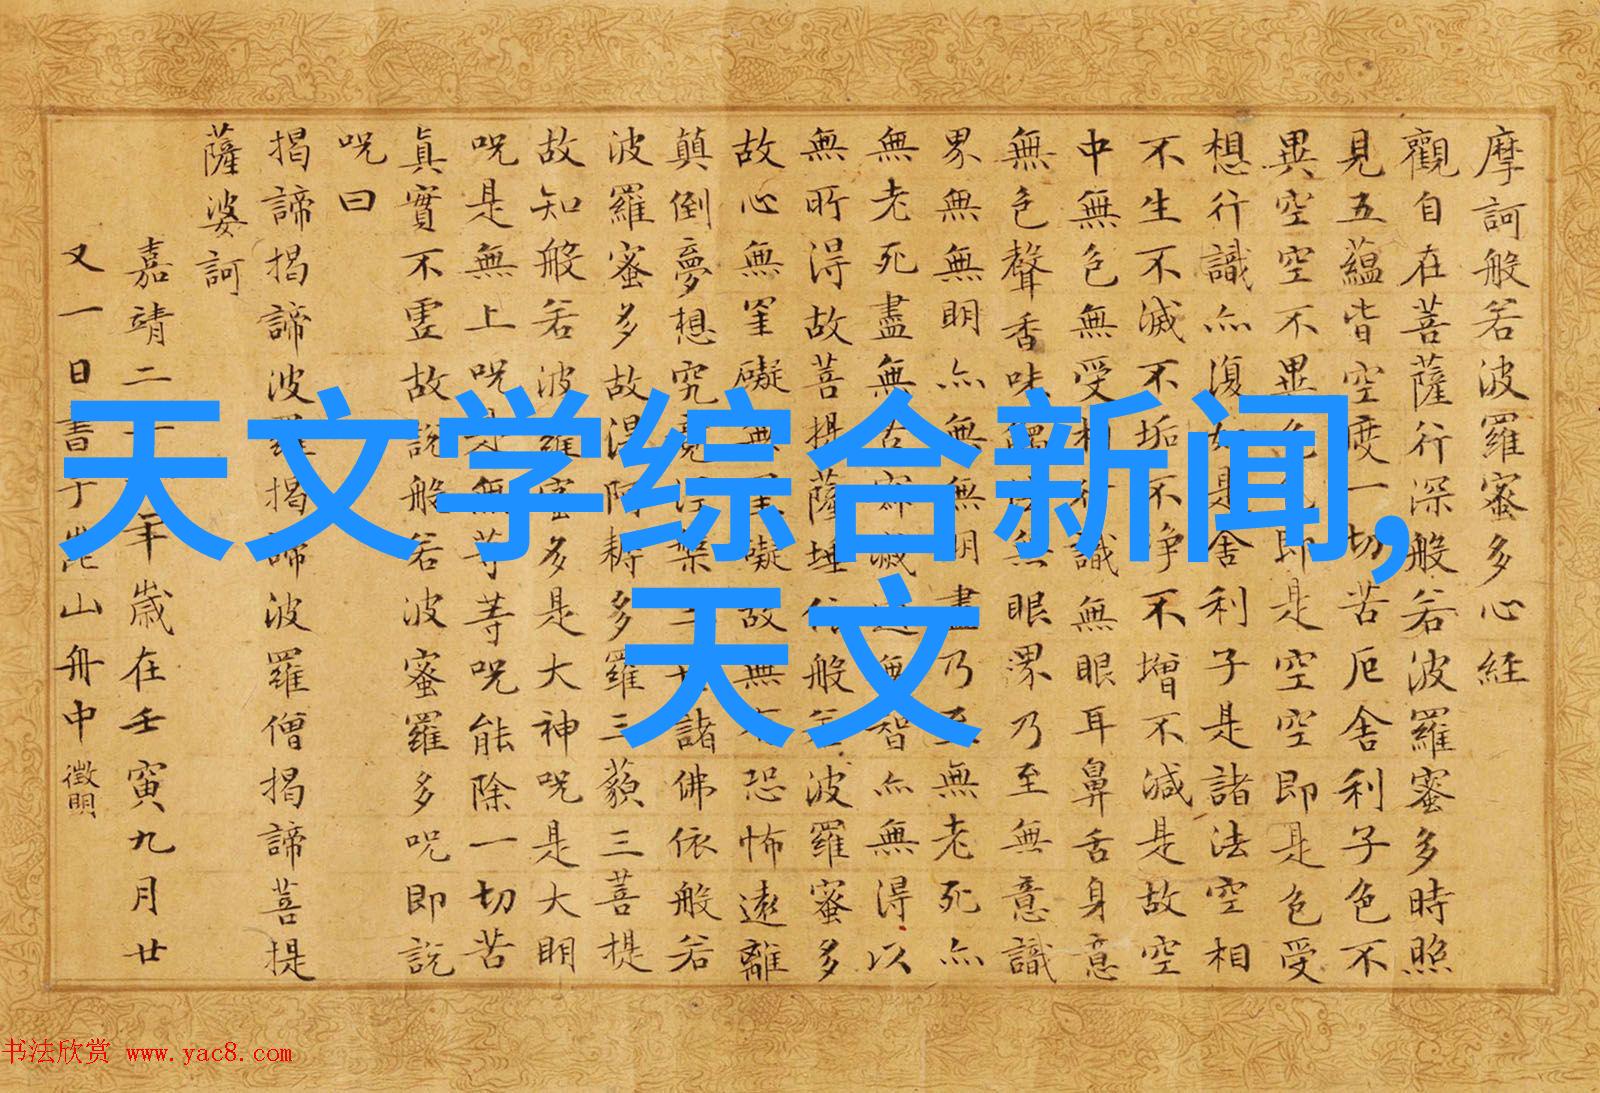 天文学综合新闻,
天文
摩訶般若波羅蜜多心經
觀自在菩薩行深般若波羅蜜多時照
見五蘊皆空度一切苦厄舍利子色不
異空空不異色色即是空空即是色受
想行識亦復如是舍利子是諸法空相
不生不滅不垢不淨不增不減是故空
中無色無受想行識無眼耳鼻舌身意
無色聲香味觸法無眼界乃至無意識
界無無明亦無無明盡乃至無老死亦
無老死盡無苦集滅道無智亦無得以
無所得故菩提薩埵依般若波羅蜜多
故心無罣礙無罣礙故無有恐怖遠離
顛倒夢想究竟涅槃三世諸佛依般若
波羅蜜多故得阿耨多羅三藐三菩提
故知般若波羅蜜多是大神呪是大明
呪是無上呪是無等等呪能除一切苦
真實不虛故說般若波羅蜜多呪即説
呪曰
揭諦揭諦波羅揭諦波羅僧揭諦菩提
薩婆訶
嘉靖二十一年歲在壬寅九月廿
又一日書于崑山舟中 徵明
书法欣赏 www.yac8.com